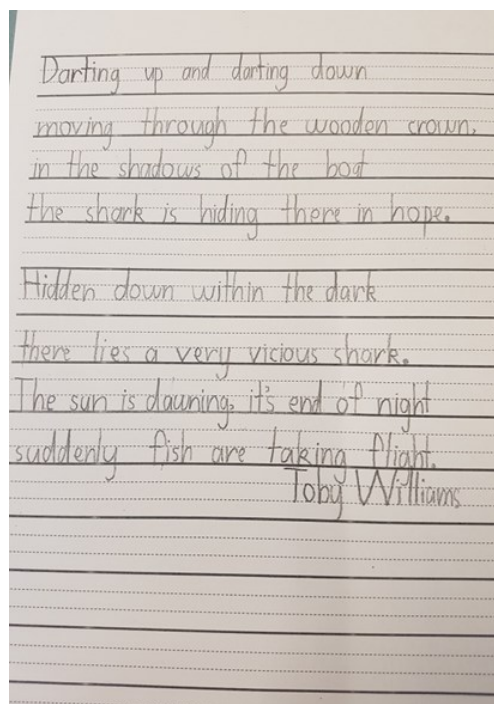 Darting up and darting down
moving through the wooden crown,
in the shadows of the boat
the shark is hiding there in hope.
Hidden down within the dark
there lies a very vicious shark.
The sun is dawning, it's end of night
suddenly fish are taking flight.
Toby Williams